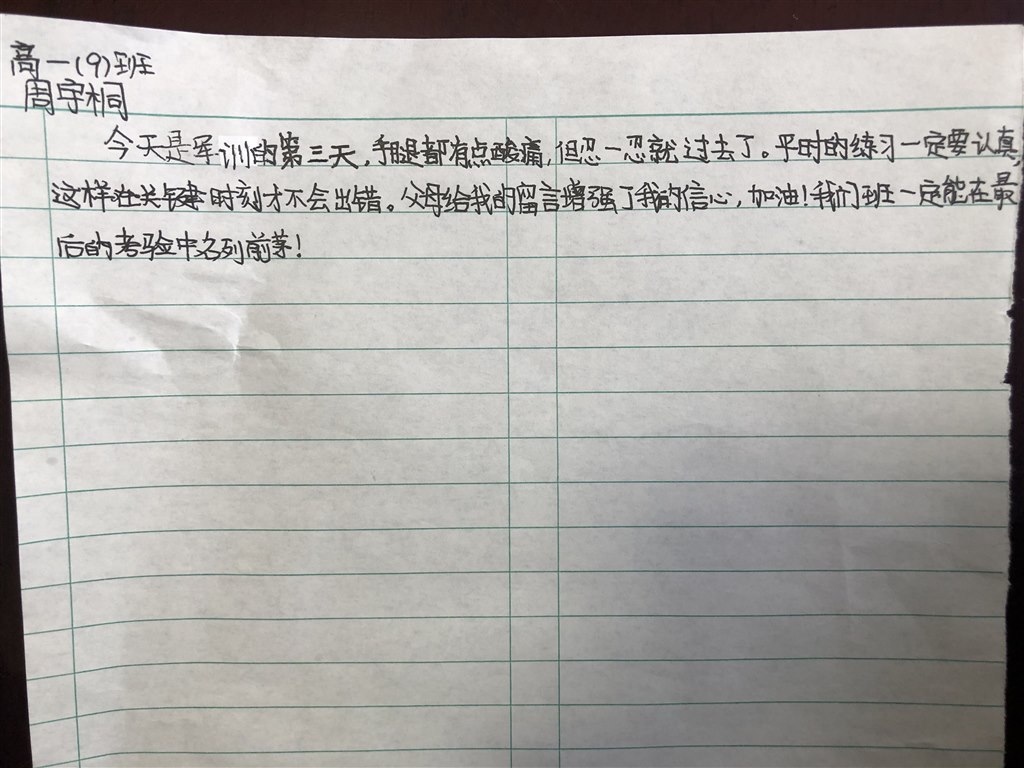 高一(9)班
周宇桐
今天是军训的第三天,手腿都有点酸痛,但忍一忍就过去了。平时的练习一定要认真,
这样在关键时刻才不会出错。父母给我的留言增强了我的信心,加油!我们班一定能在最
后的考验中名列前茅!